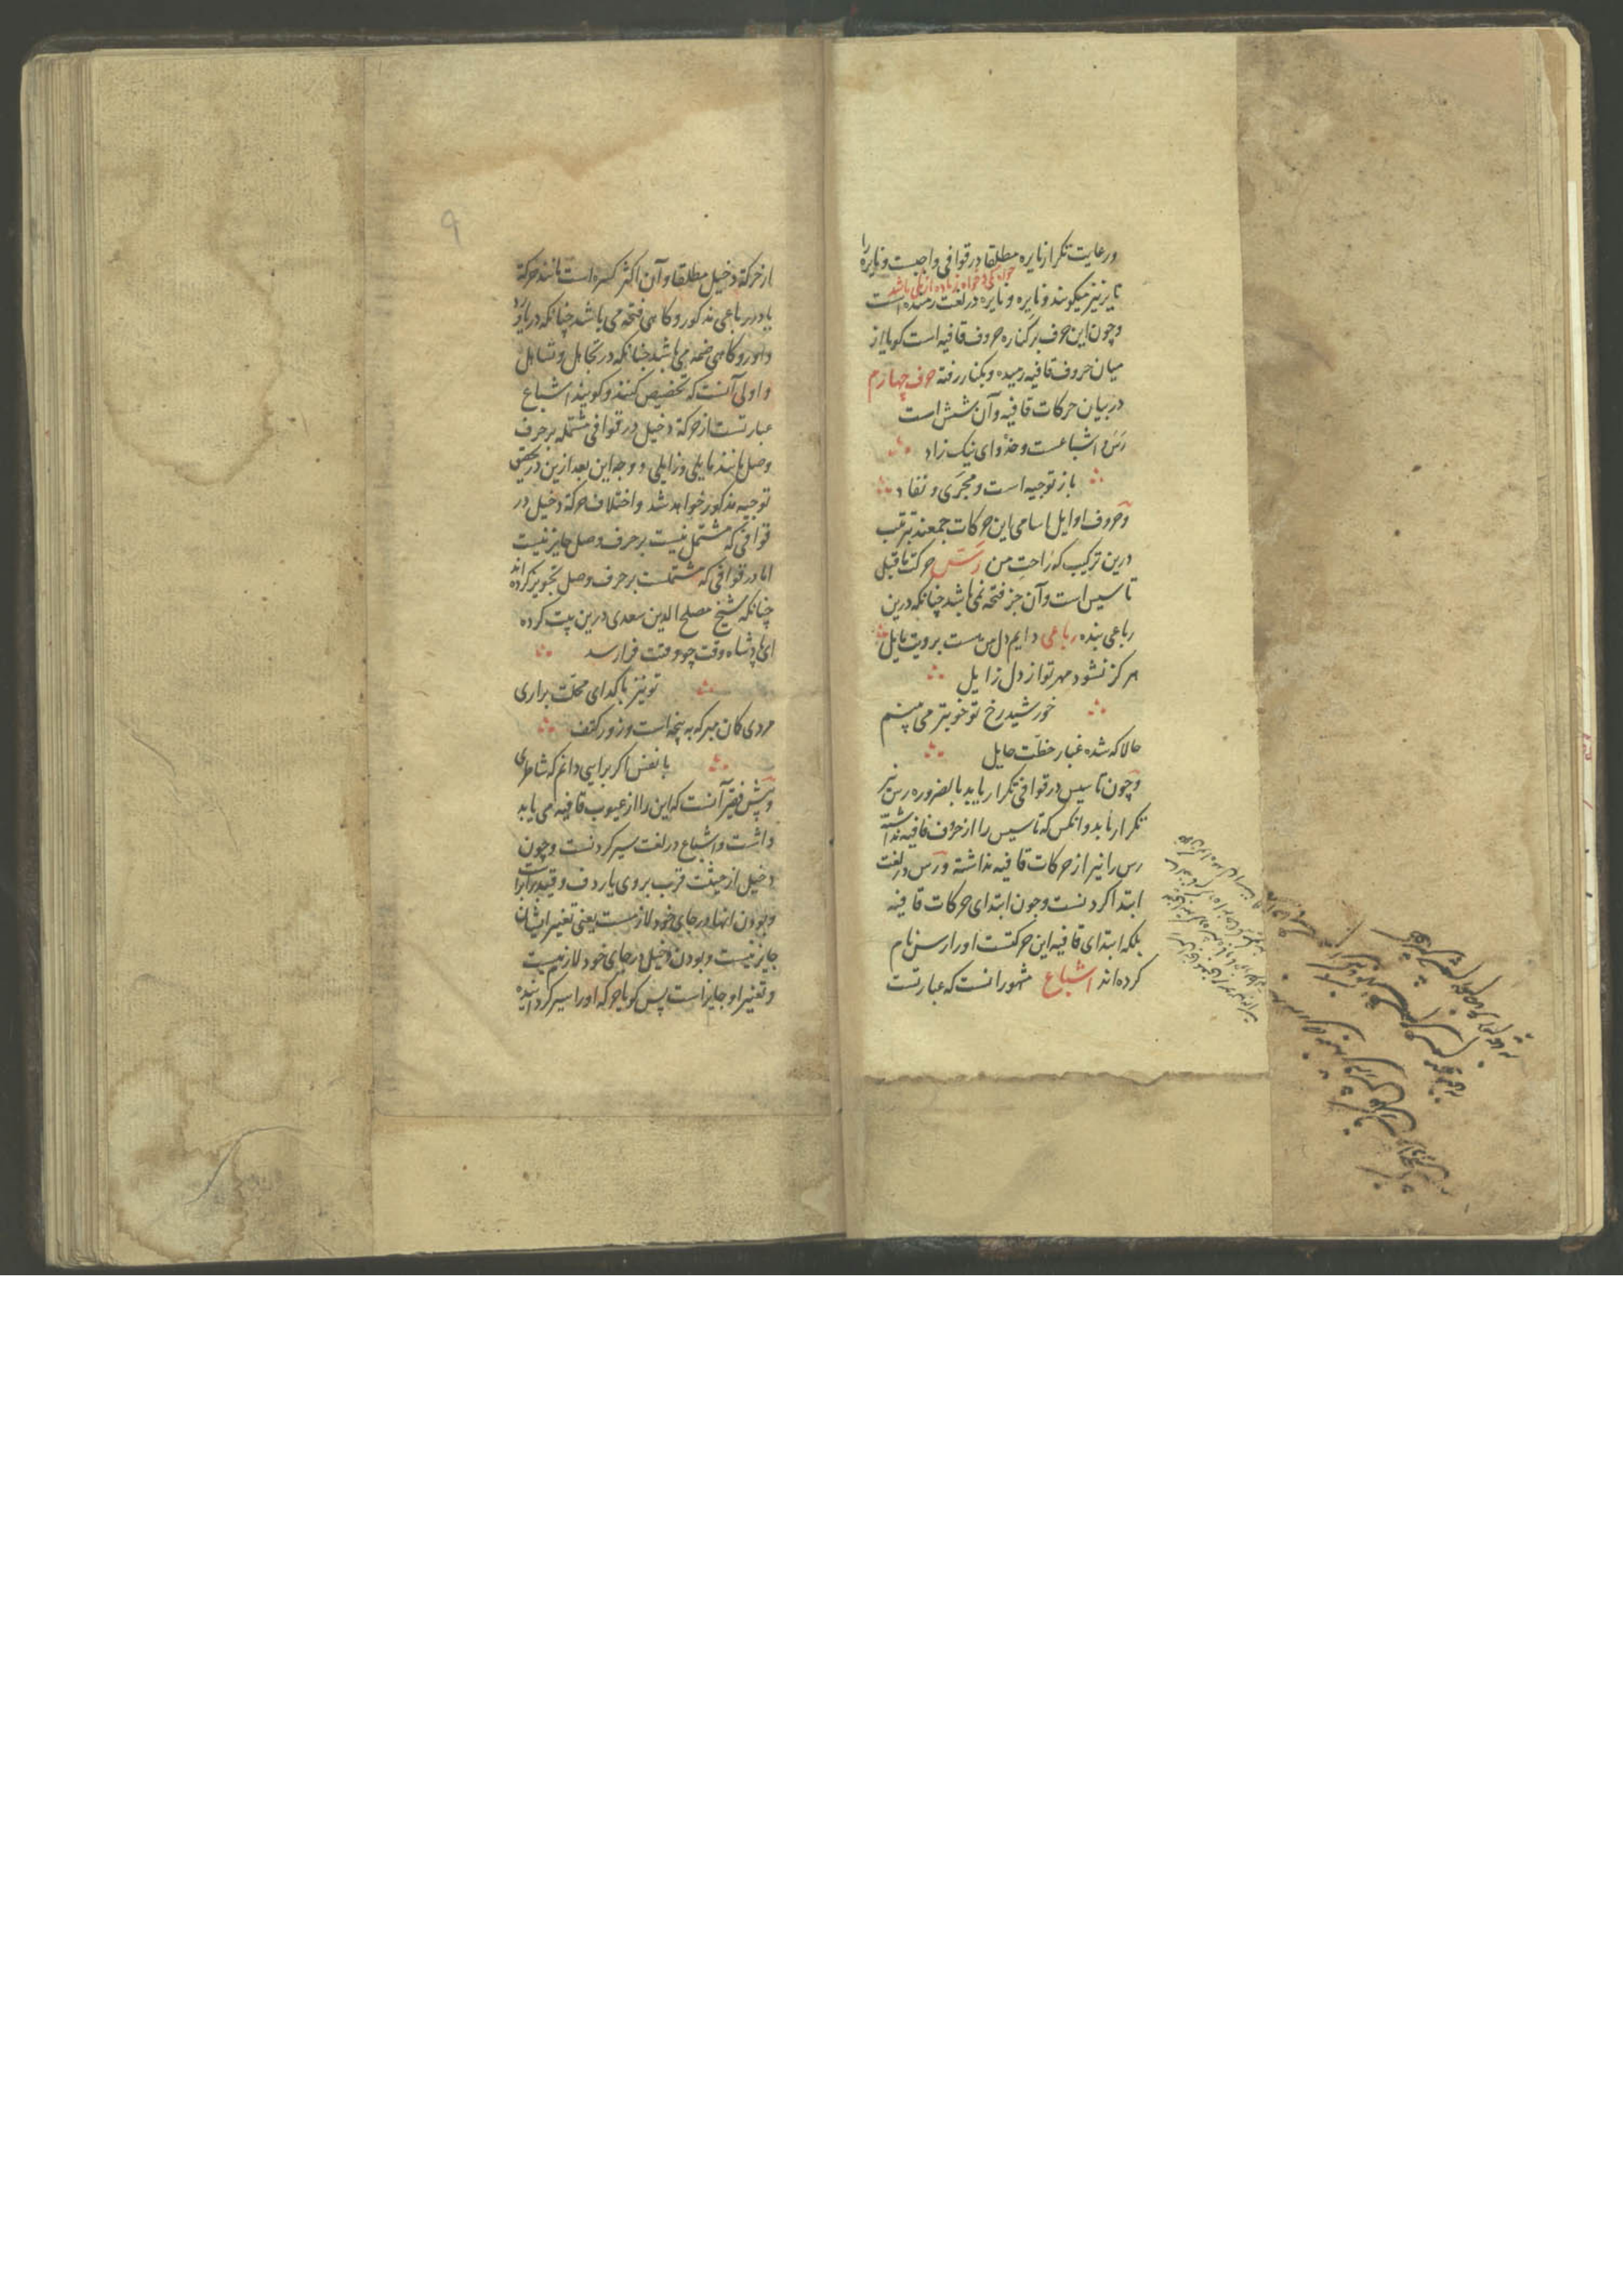 ورعایت تکرار نایره مطلقا در قوافی واجبست و نایره را
نایر نیز میکویند و نایره در لغت رمیده است
وچون این حرف بر کناره حروف قافیه است کویا از
میان حروف قافیه رمیده و بکنار رفته حرف چهارم
در بیان حرکات قافیه وآن شش است
رس و اشباعست وحذو ای نیک زاد
باز توجیه است ومجری و نفاد
وحروف اوایل اسامی این حرکات جمعند بترتیب
درین ترکیب که راحت من رس حرکت ماقبل
تاسیس است وآن جز فتحه نمی باشد چنانکه درین
رباعی بنده رباعی دایم دل من هست برویت مایل
هرکز نشود مهر تو از دل زایل
خورشید رخ تو خوبتر می بینم
حالا که شده غبار خطت حایل
وچون تاسیس در قوافی تکرار یابد بالضروره رس نیز
تکرار یابد وانکس که تاسیس را از حروف قافیه نداشته
رس را نیز از حرکات قافیه نداشته ورس در لغت
ابتدا کردنست وچون ابتدای حرکات قافیه
بلکه ابتدای قافیه این حرکتست اورا رس نام
کرده اند اشباع مشهور انست که عبارتست
۹
از حرکة دخیل مطلقا وآن اکثر کسره است مانند حرکة
یا در رباعی مذکور وکاهی فتحه می باشد چنانکه در یاور
وداور وکاهی ضمه می باشد چنانکه در تجاهل وتساهل
واولی آنست که تخصیص کنند وکویند اشباع
عبارتست از حرکة دخیل در قوافی مشتمله بر حرف
وصل مانند مایلی وزایلی و وجه این بعد ازین در تحقیق
توجیه مذکور خواهد شد واختلاف حرکة دخیل در
قوافی که مشتمل نیست بر حرف وصل جایز نیست
اما در قوافی که مشتملست بر حرف وصل تجویز کرده اند
چنانکه شیخ مصلح الدین سعدی درین بیت کرده
ای پادشاه وقت چو وقتت فرا رسد
تو نیز با کدای محلت براری
مردی کمان مبر که به پنجه است وزور کتف
با نفس اکر برایی دانم که شاطری
وپیش فقیر آنست که این را از عیوب قافیه می باید
داشت واشباع در لغت سیر کردنست وچون
دخیل از حیثیت قرب بروی یا ردف وقید برابر است
وبودن انها در جای خود لازمست یعنی تغییر ایشان
جایز نیست وبودن دخیل در جای خود لازم نیست
وتغییر او جایز است پس کویا حرکه اورا سیر کردانیده